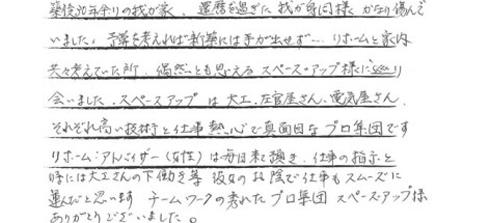 築後30年余りの我が家、還暦を過ぎた我が身同様かなり傷んで
いました。予算を考えれば新築には手が出せず… リホームと家内
共々考えていた所、偶然とも思えるスペース・アップ様に
会いました。スペースアップは大工、左官屋さん、電気屋さん、
それぞれ高い技術と仕事熱心で真面目なプロ集団です
リホーム:アドバイザー(女性)は毎日来て頂き、仕事の指示と
時には大工さんの下働き等 彼女のお陰で仕事もスムーズに
運んだと思います チームワークの取れたプロ集団 スペースアップ様
ありがとうございました。